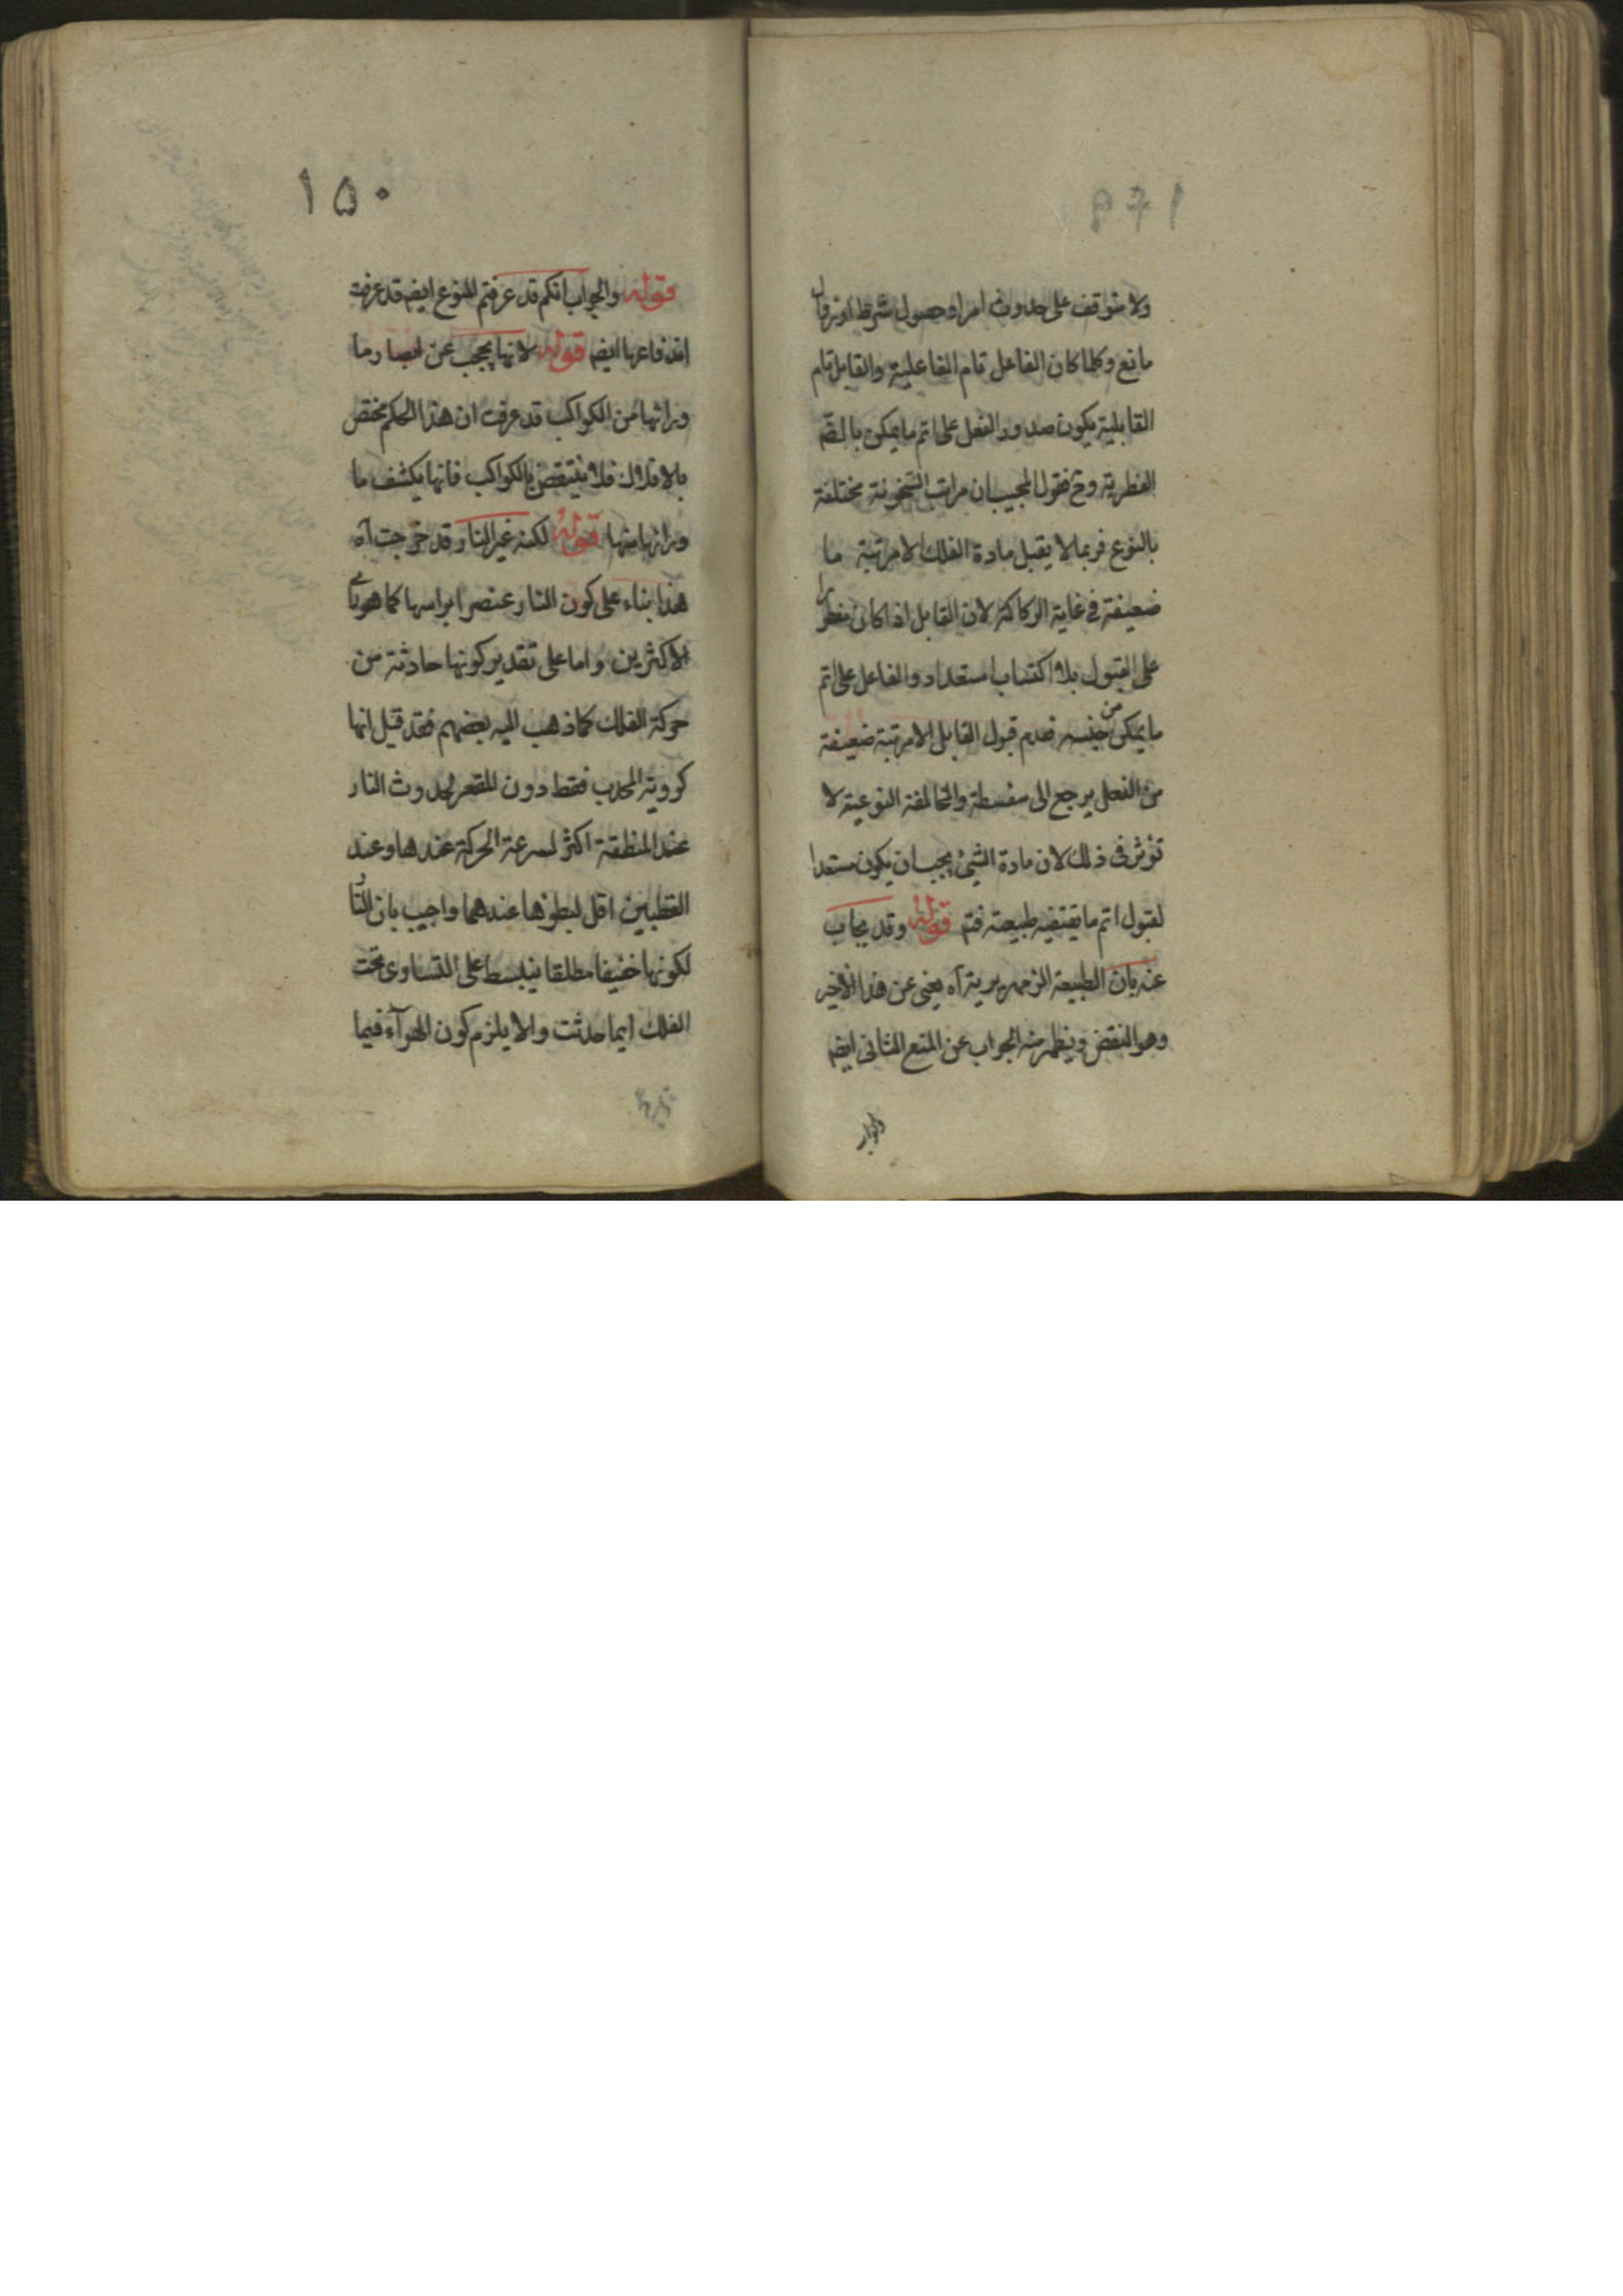 ولا يتوقف على حدوث امر او حصول شرط او زوال
مانع وكلما كان الفاعل تام الفاعلية والقابل تام
القابلية يكون صدور الفعل على اتم ما يمكن بالضم
الفطرية وح فقول المجيب ان مراتب السخونة مختلفة
بالنوع فربما لا يقبل مادة الفلك الا مرتبة ما
ضعيفة في غاية الركاكة لان القابل اذا كان مفطورا
على القبول بلا اكتساب استعداد والفاعل على اتم
ما يمكن من جنسه فعدم قبول القابل الا مرتبة ضعيفة
من الفعل يرجع الى سفسطة والمخالفة النوعية لا
تؤثر في ذلك لان مادة الشيئ يجب ان يكون مستعدا
لقبول اتم ما يقتضيه طبيعته فتم قوله وقد يجاب
عنه بان الطبيعة الزمهريرية آه يعني عن هذا الاخير
وهو النقض ويظهر منه الجواب عن المنع الثاني ايضا
والجواب
١٥٠
قوله والجواب انكم قد عرفتم للنوع ايضا قد عرفت
اندفاعها ايضا قوله لانها يحجب عن ابصار ما
ورائها من الكواكب قد عرفت ان هذا الحكم مختص
بالافلاك فلا ينتقض بالكواكب فانها يكشف ما
ورائها منها قوله لكنه غير النار قد خرجت آه
هذا بناء على كون النار عنصرا براسها كما هو راى
الاكثرين واما على تقدير كونها حادثة من
حركة الفلك كما ذهب اليه بعضهم فقد قيل انها
كروية المحدب فقط دون المقعر لحدوث النار
عند المنطقة اكثر لسرعة الحركة عندها وعند
القطبين اقل لبطؤها عندهما واجيب بان النار
لكونها خفيفا مطلقا ينبسط على التساوى تحت
الفلك ايما حدثت والا يلزم كون الهوآء فيما